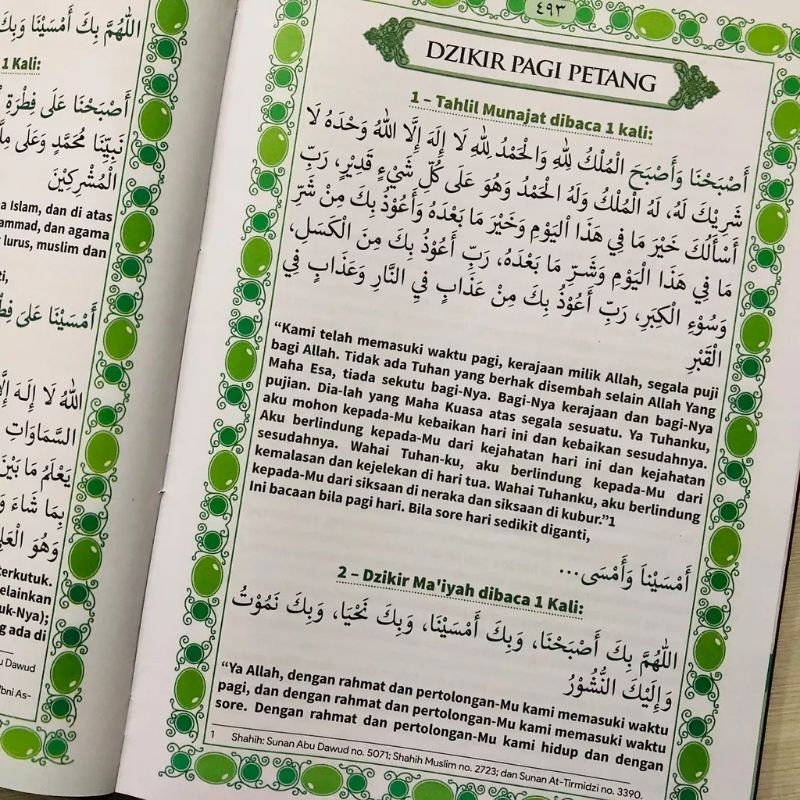 ٤٩٣
DZIKIR PAGI PETANG
1 – Tahlil Munajat dibaca 1 kali:
أَصْبَحْنَا وَأَصْبَحَ الْمُلْكُ لِلّٰهِ وَالْحَمْدُ لِلّٰهِ لَا إِلَهَ إِلَّا اللّٰهُ وَحْدَهُ لَا
شَرِيْكَ لَهُ، لَهُ الْمُلْكُ وَلَهُ الْحَمْدُ وَهُوَ عَلَى كُلِّ شَيْءٍ قَدِيْرٍ، رَبِّ
أَسْأَلُكَ خَيْرَ مَا فِي هَذَا الْيَوْمِ وَخَيْرَ مَا بَعْدَهُ وَأَعُوْذُ بِكَ مِنْ شَرِّ
مَا فِي هَذَا الْيَوْمِ وَشَرِّ مَا بَعْدَهُ، رَبِّ أَعُوْذُ بِكَ مِنَ الْكَسَلِ،
وَسُوْءِ الْكِبَرِ، رَبِّ أَعُوْذُ بِكَ مِنْ عَذَابٍ فِي النَّارِ وَعَذَابٍ فِي
الْقَبْرِ
“Kami telah memasuki waktu pagi, kerajaan milik Allah, segala puji
bagi Allah. Tidak ada Tuhan yang berhak disembah selain Allah Yang
Maha Esa, tiada sekutu bagi-Nya. Bagi-Nya kerajaan dan bagi-Nya
pujian. Dia-lah yang Maha Kuasa atas segala sesuatu. Ya Tuhanku,
aku mohon kepada-Mu kebaikan hari ini dan kebaikan sesudahnya.
Aku berlindung kepada-Mu dari kejahatan hari ini dan kejahatan
sesudahnya. Wahai Tuhan-ku, aku berlindung kepada-Mu dari
kemalasan dan kejelekan di hari tua. Wahai Tuhanku, aku berlindung
kepada-Mu dari siksaan di neraka dan siksaan di kubur.”1
Ini bacaan bila pagi hari. Bila sore hari sedikit diganti,
أَمْسَيْنَا وَأَمْسَى...
2 – Dzikir Ma'iyah dibaca 1 Kali:
اللّٰهُمَّ بِكَ أَصْبَحْنَا، وَبِكَ أَمْسَيْنَا، وَبِكَ نَحْيَا، وَبِكَ نَمُوْتُ
وَإِلَيْكَ النُّشُوْرُ
“Ya Allah, dengan rahmat dan pertolongan-Mu kami memasuki waktu
pagi, dan dengan rahmat dan pertolongan-Mu kami memasuki waktu
sore. Dengan rahmat dan pertolongan-Mu kami hidup dan dengan
1 Shahih: Sunan Abu Dawud no. 5071; Shahih Muslim no. 2723; dan Sunan At-Tirmidzi no. 3390.
اللّٰهُمَّ بِكَ أَمْسَيْنَا وَبِكَ
1 Kali:
أَصْبَحْنَا عَلَى فِطْرَةِ
نَبِيِّنَا مُحَمَّدٍ وَعَلَى
الْمُشْرِكِيْنَ
a Islam, dan di atas
ammad, dan agama
lurus, muslim dan
ti,
أَمْسَيْنَا عَلَى
اللّٰهُ لَا إِلَهَ إِلَّا
السَّمَاوَاتِ
يَعْلَمُ مَا بَيْنَ
بِمَا شَاءَ
وَهُوَ
terkutuk.
elainkan
uk-Nya);
ng ada di
u Dawud
bni As-